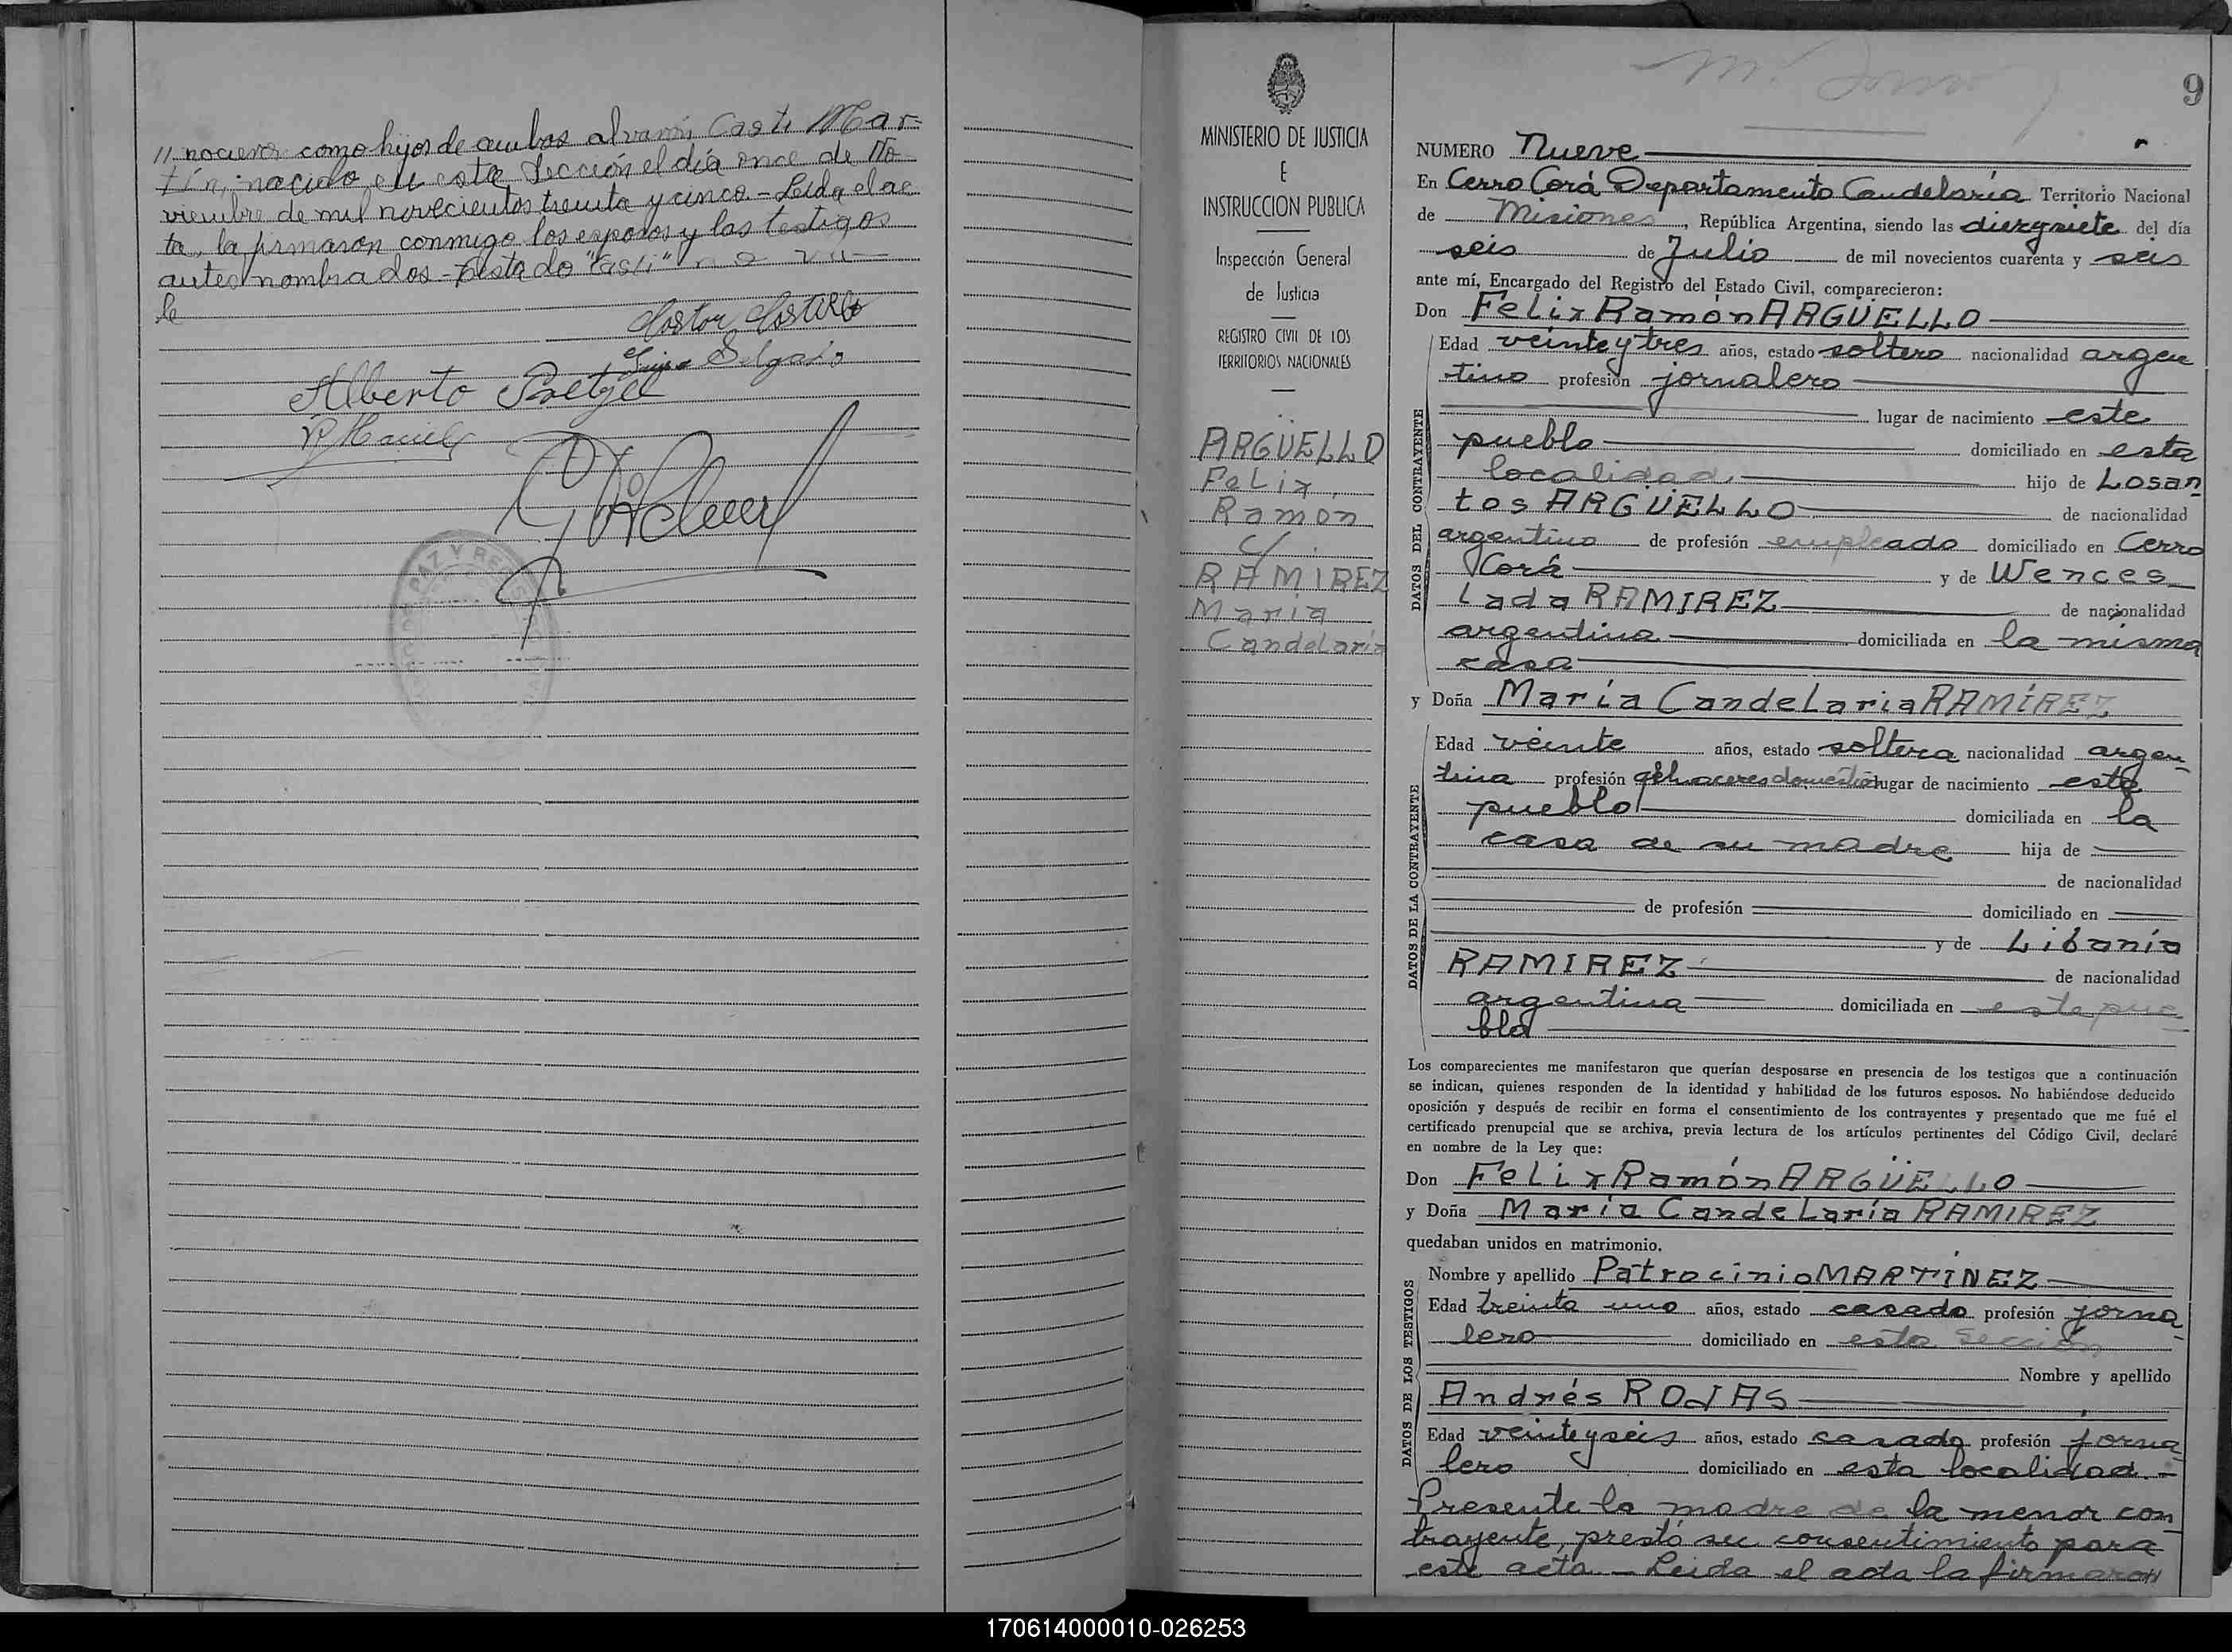 // nocieron como hijos de ambos al varón Casti Mar-
tín, nacido en esta Sección el día once de No
viembre de mil novecientos treinta y cinco.- Leida el ac
ta, la firmaron conmigo los esposos y los testigos
antes nombrados.- Testado "Casti" no va-
le
Alberto
MINISTERIO DE JUSTICIA
E
INSTRUCCION PUBLICA
Inspección General
de Justicia
REGISTRO CIVIL DE LOS
TERRITORIOS NACIONALES
ARGÜELLO
FeLix,
Ramon
c/.
RAMIREZ
María
CandeLaria
9
NUMERO Nueve
En Cerro Corá Departamento Candelaria Territorio Nacional
de Misiones, República Argentina, siendo las diezysiete del día
seis de Julio de mil novecientos cuarenta y seis
ante mí, Encargado del Registro del Estado Civil, comparecieron:
Don FeLix Ramón ARGÜELLO
DATOS DEL CONTRAYENTE
Edad veinte y tres años, estado soltero nacionalidad argen
tino profesión jornalero
lugar de nacimiento este
pueblo domiciliado en esta
localidad. hijo de Losan
tos ARGÜELLO de nacionalidad
argentino de profesión empleado domiciliado en Cerro
Corá y de Wences
Lada RAMIREZ de nacionalidad
argentina domiciliada en la misma
casa
y Doña María CandeLaria RAMÍREZ
DATOS DE LA CONTRAYENTE
Edad veinte años, estado soltera nacionalidad argen
tina profesión quehaceres domésticos lugar de nacimiento este
pueblo domiciliada en la
casa de su madre hija de
de nacionalidad
de profesión domiciliado en
y de Libania
RAMIREZ de nacionalidad
argentina domiciliada en este pue
blo
Los comparecientes me manifestaron que querían desposarse en presencia de los testigos que a continuación
se indican, quienes responden de la identidad y habilidad de los futuros esposos. No habiéndose deducido
oposición y después de recibir en forma el consentimiento de los contrayentes y presentado que me fué el
certificado prenupcial que se archiva, previa lectura de los artículos pertinentes del Código Civil, declaré
en nombre de la Ley que:
Don FeLix Ramón ARGÜELLO
y Doña María CandeLaría RAMIREZ
quedaban unidos en matrimonio.
DATOS DE LOS TESTIGOS
Nombre y apellido Patrocinio MARTÍNEZ
Edad treinta uno años, estado casado profesión jorna
lero domiciliado en esta Sección
Nombre y apellido
Andrés ROJAS
Edad veinte y seis años, estado casado profesión jorna
lero domiciliado en esta localidad.-
Presente la madre de la menor con
trayente, prestó su consentimiento para
este acto.- Leida el acta la firmaron
170614000010-026253